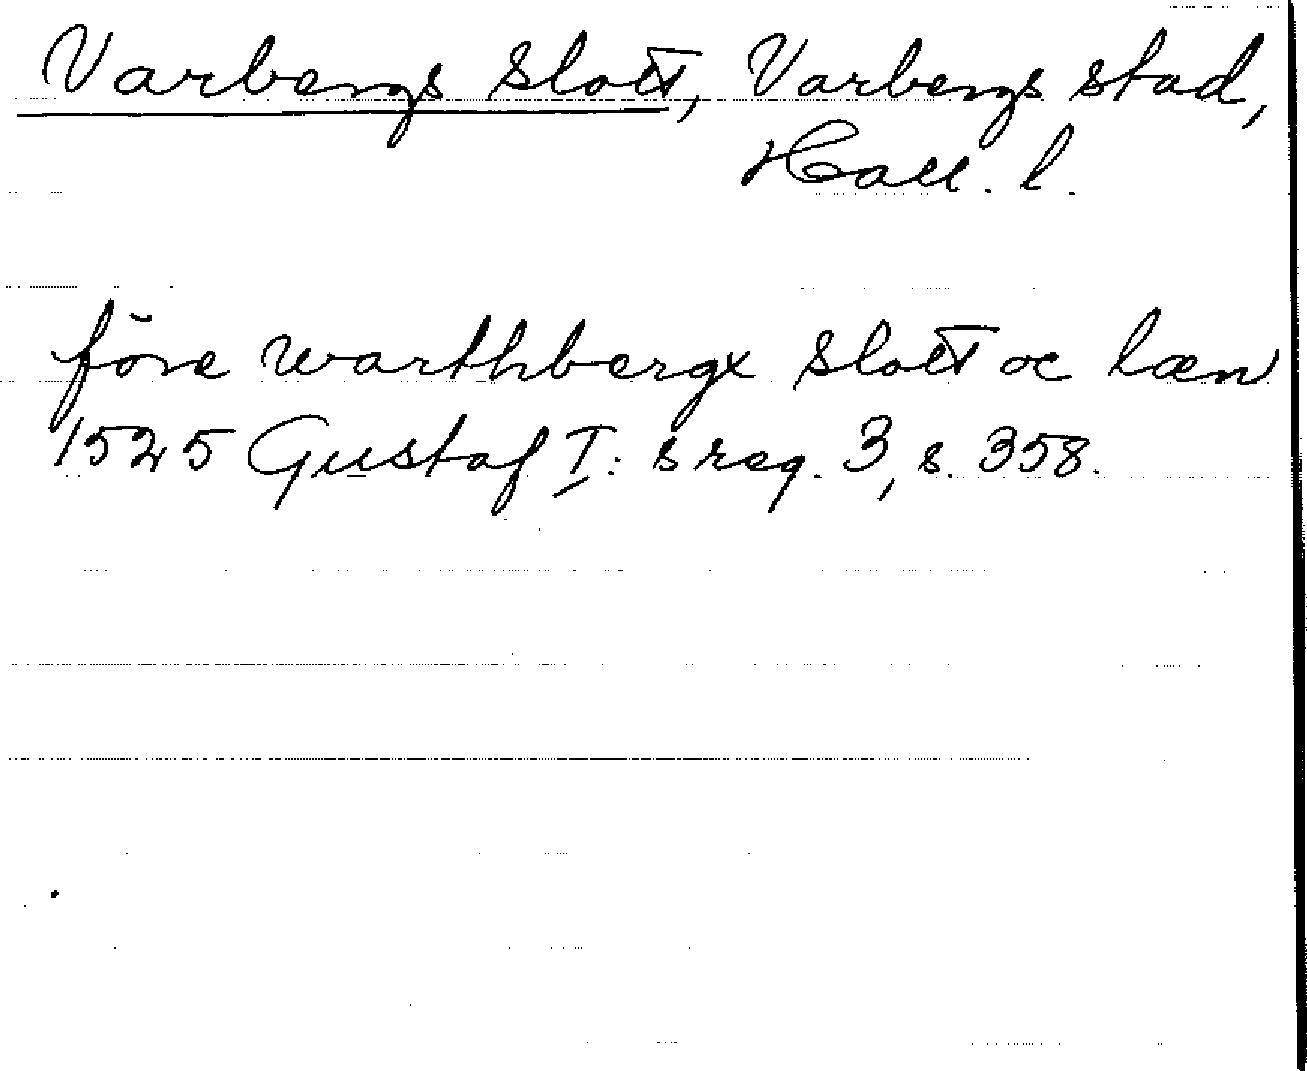 Varbergs slott, Varbergs stad,
Hall. l.
före warthbergx slott oc læn
1525 Gustaf I:s reg. 3, s. 358.